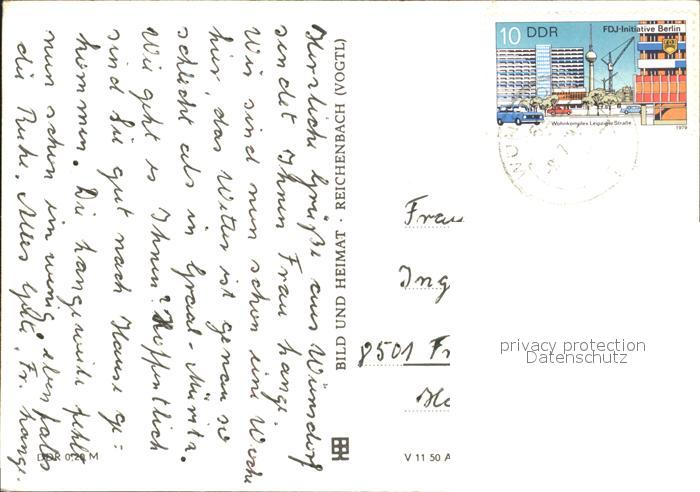 Herzliche Grüße aus Wünsdorf
sendet Ihnen Frau Lange.
Wir sind nun schon eine Woche
hier, das Wetter ist genau so
schlecht als in Graal-Müritz.
Wie geht es Ihnen? Hoffentlich
sind Sie gut nach Hause ge-
kommen. Die Langeweile fehlt
nun schon ein wenig ebenfalls
die Ruhe. Alles Gute. Fr. Lange.
DDR 0,20 M
BILD UND HEIMAT · REICHENBACH (VOGTL)
V 11 50 A
10 DDR
FDJ-Initiative Berlin
Wohnkomplex Leipziger Straße
1979
Frau
Ing
8501 Fr
privacy protection
Datenschutz